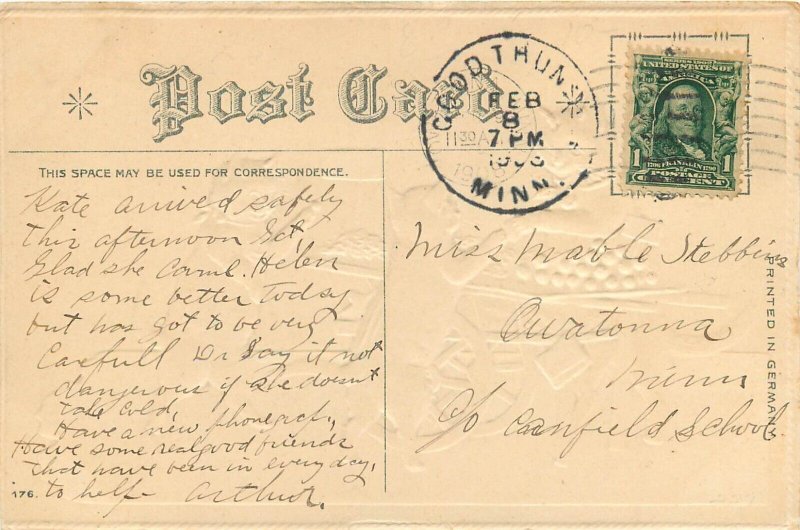 Post Card
GOOD THUNDER
FEB
8
7 PM
MINN.
SERIES 1902
UNITED STATES OF
AMERICA
1 1706 FRANKLIN 1790 1
POSTAGE
ONE CENT
THIS SPACE MAY BE USED FOR CORRESPONDENCE.
Kate arrived safely
this afternoon Sat,
Glad she came. Helen
is some better today
but has got to be very
Carefull Dr Say it not
dangerous if she doesnt
take cold,
Have a new phonograph,
Have some real good friends
that have been in every day,
to help - Arthur.
Miss Mable Stebbins
Owatonna
Minn
c/o Canfield School
PRINTED IN GERMANY
176.